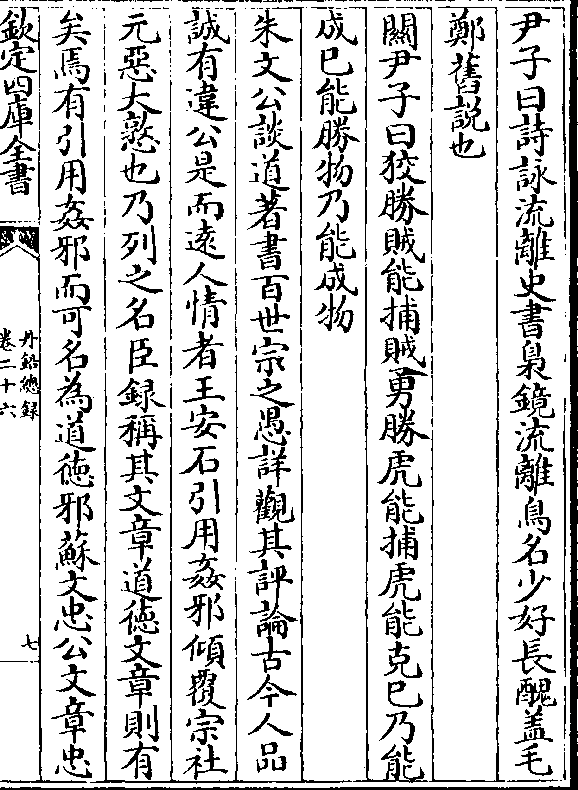 尹子曰詩詠流離史書梟鏡流離鳥名少好長醜盖毛
鄭舊説也
關尹子曰狡勝賊能捕賊勇勝虎能捕虎能克已乃能
成已能勝物乃能成物
朱文公談道著書百世宗之愚詳觀其評論古今人品
誠有違公是而逺人情者王安石引用姦邪傾覆宗社
元惡大憝也乃列之名臣録稱其文章道徳文章則有
矣焉有引用姦邪而可名為道徳邪蘇文忠公文章忠
欽定四庫全書
丹鉛總録
卷二十六
七